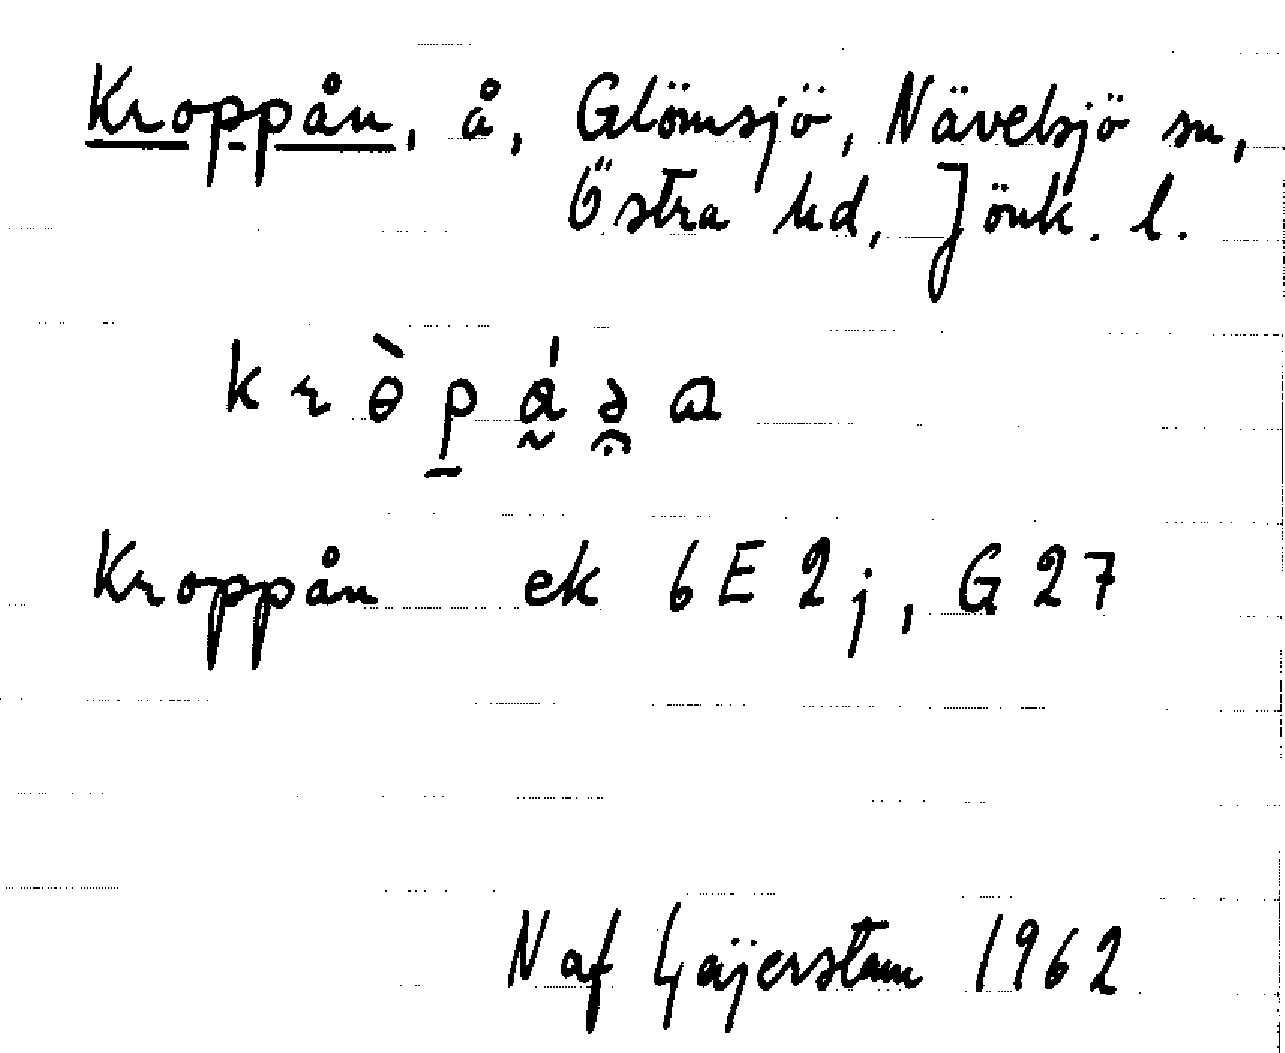 Kroppån, å, Glömsjö, Nävelsjö sn,
Östra hd, Jönk. l.
Kroppån ek 6E2j, G27
N af Gäjerstam 1962